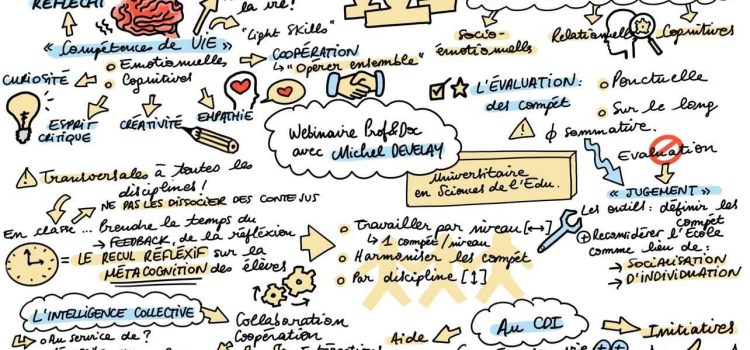 RÉFLÉCHI
la vie!
"Light Skills"
« Compétences de VIE »
Emotionnelles
Cognitives
CURIOSITÉ
ESPRIT
CRITIQUE
CRÉATIVITÉ
EMPATHIE
COOPÉRATION
↳ "Opérer ensemble"
Socio-
émotionnelles
Relationnelles
Cognitives
L'ÉVALUATION :
des compét
Ponctuelle
Sur le long
Ø sommative.
Evaluation
« JUGEMENT »
Les outils: définir les
compét
Reconsidérer l'École
comme lieu de:
→ SOCIALISATION
→ D'INDIVIDUATION
Webinaire Prof&Doc
avec Michel DEVELAY
Universitaire
en Sciences de l'Edu.
Transversales à toutes les
disciplines!
NE PAS LES DISSOCIER DES CONTENUS
En classe ... Prendre le temps du
→ FEEDBACK, de la réflexion
= LE RECUL RÉFLEXIF sur la
MÉTACOGNITION des élèves
Travailler par niveau [↔]
↳ 1 compét/niveau
Harmoniser les compét
Par discipline [1]
L'INTELLIGENCE COLLECTIVE
Au service de ?
Collaboration
Coopération
Aide
Au CDI
Initiatives